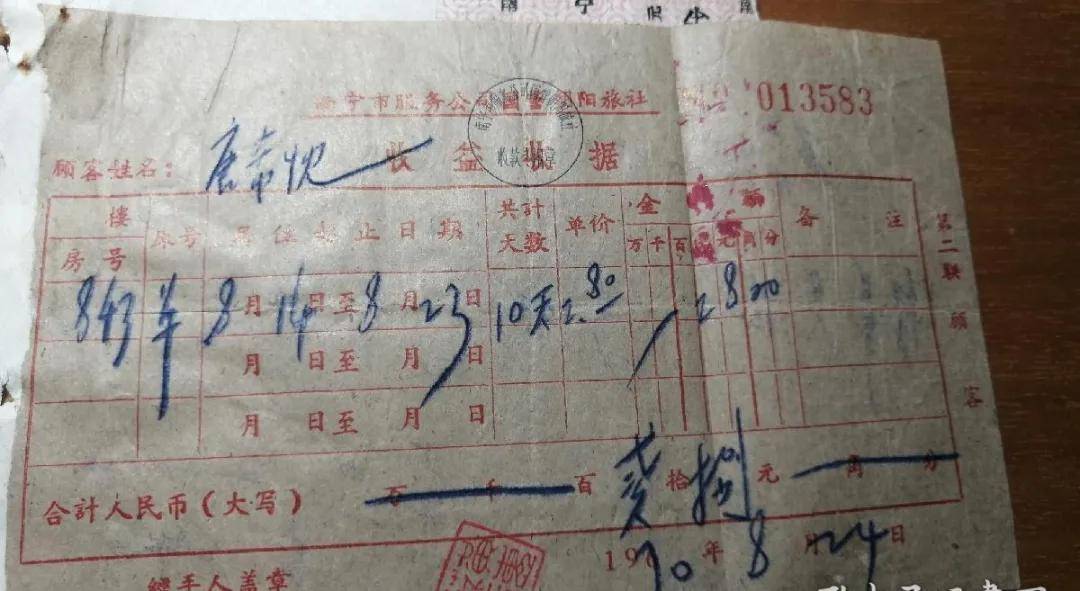 南宁市服务公司国营朝阳旅社
013583
收益收据
顾客姓名：
楼 床号 居住起止日期 共计 单价 金额 备注
房号 天数 万千百元角分
843 8月14日至8月23日 10天 2.80 2800
月 日至 月 日
月 日至 月 日
合計人民币（大写） 万 千 百 贰拾捌元 角 分
1970年8月24日
經手人盖章
第二联 顾客